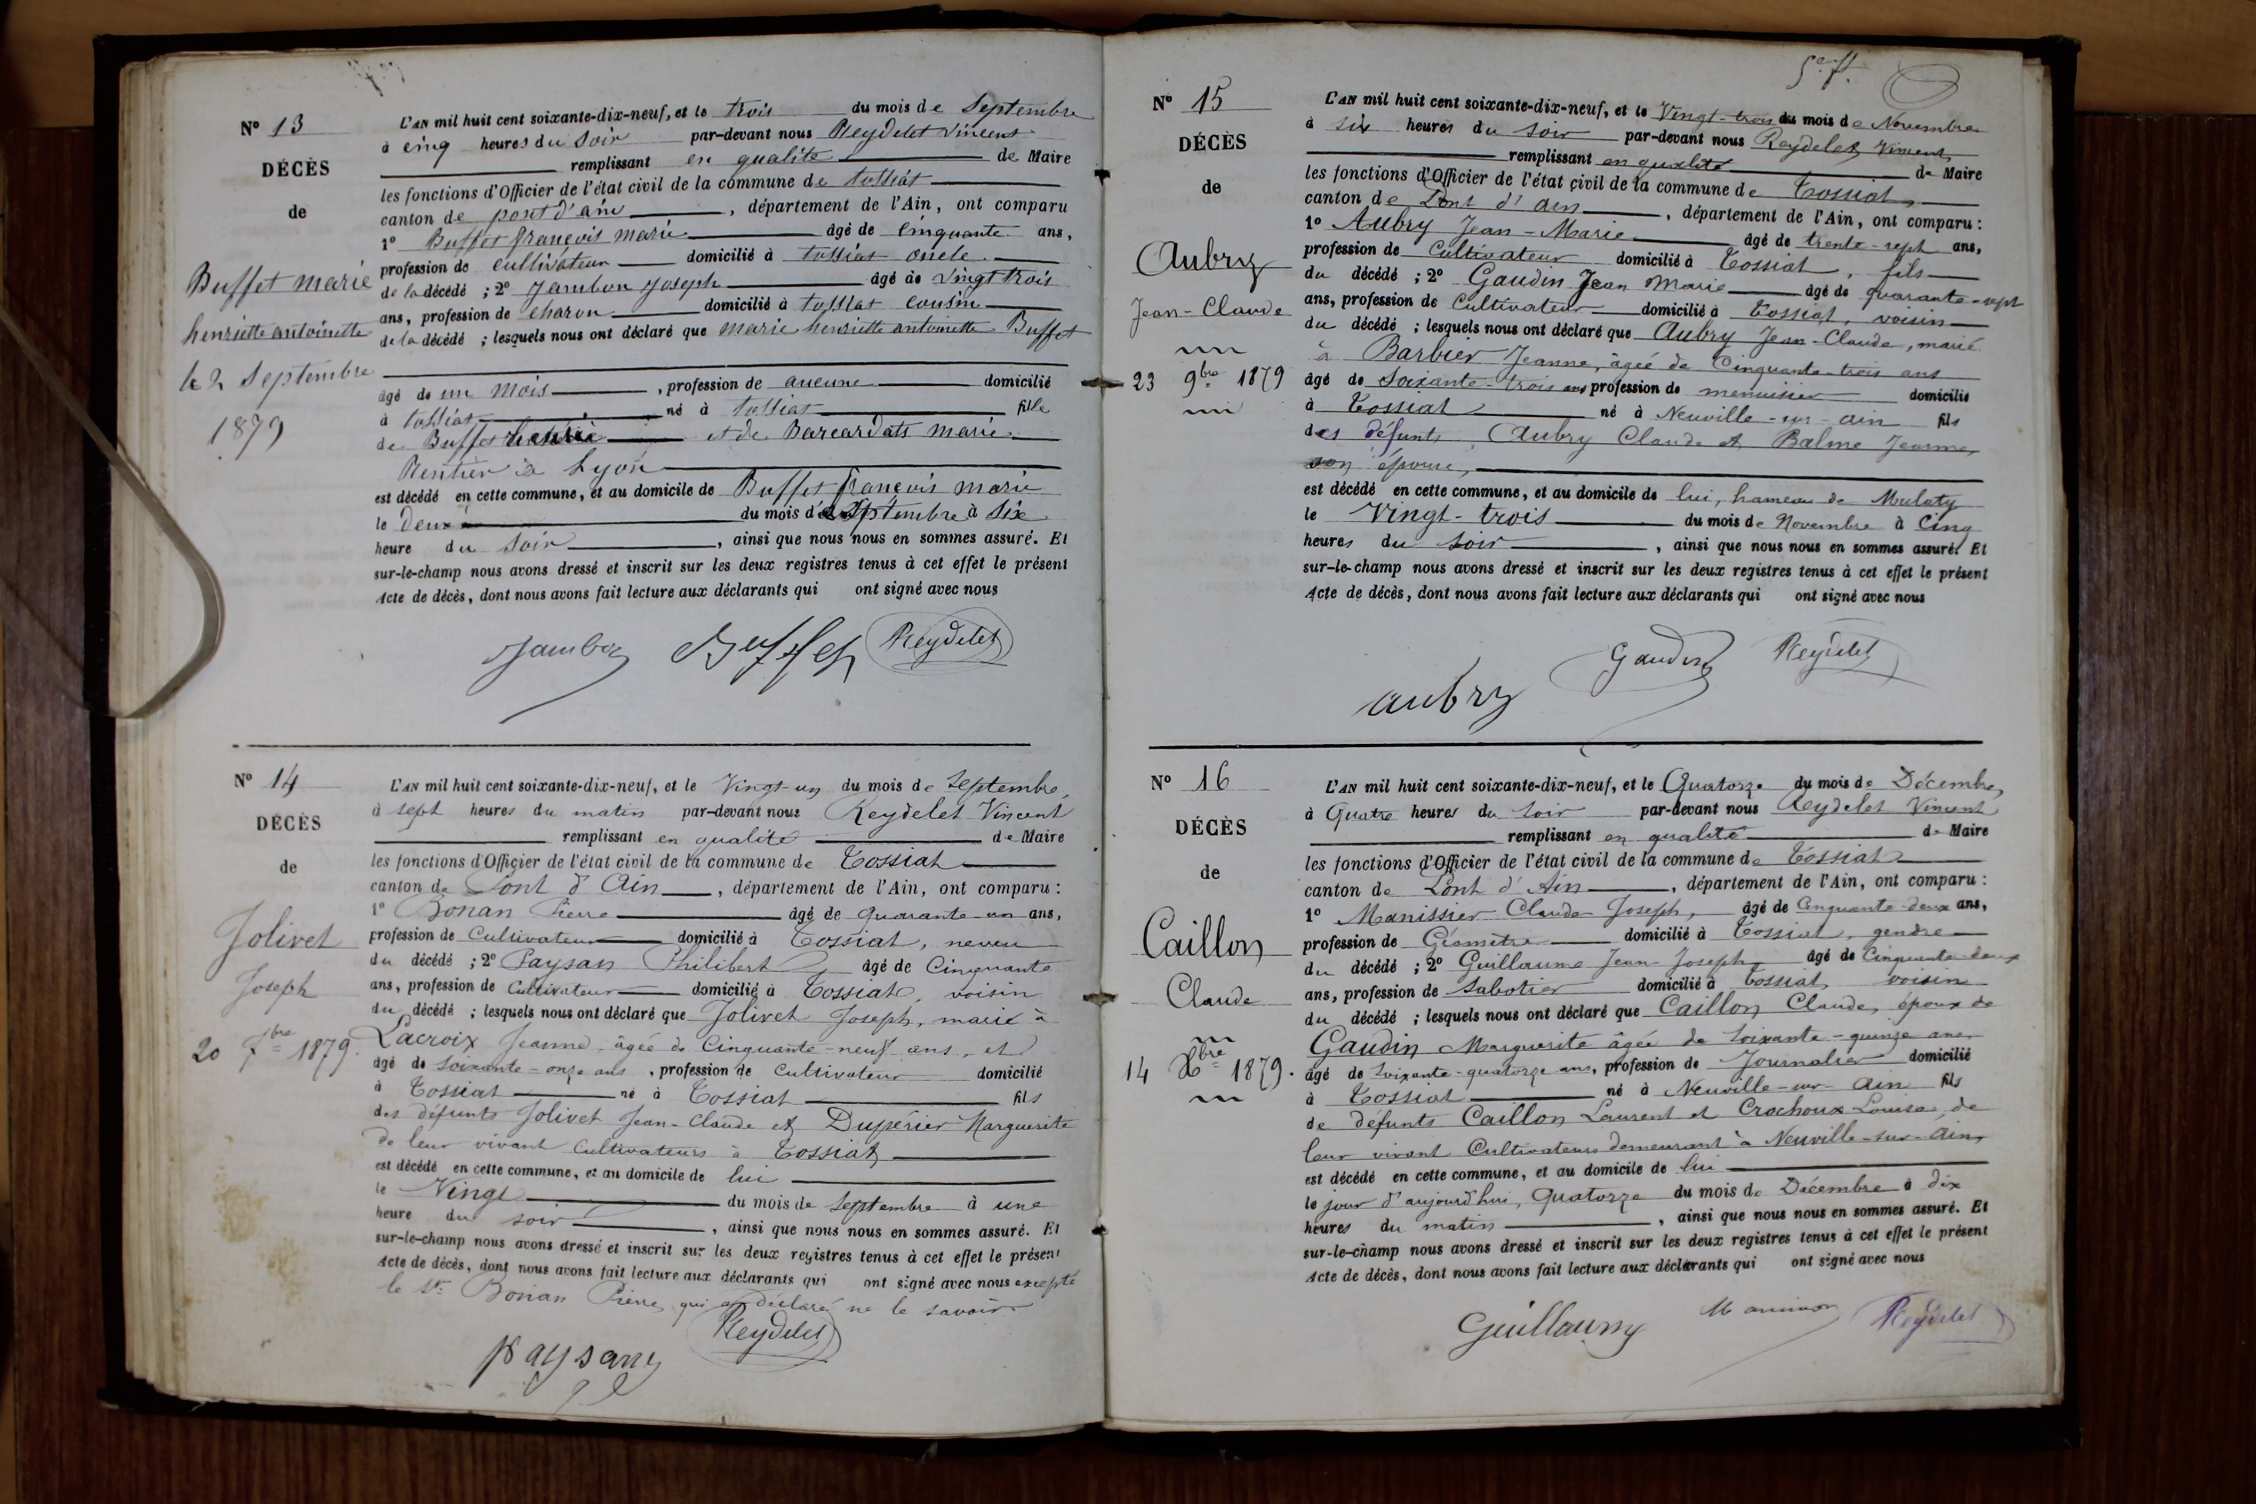 Nº 13
DÉCÈS
de
Buffet marie
henriette antoinette
le 2 Septembre
1879
L'AN mil huit cent soixante-dix-neuf, et le trois du mois de Septembre
à cinq heures du soir par-devant nous Reydelet Vincent
remplissant en qualité de Maire
les fonctions d'Officier de l'état civil de la commune de tossiat
canton de pont d'ain, département de l'Ain, ont comparu
1º Buffet françois marie âgé de cinquante ans,
profession de cultivateur domicilié à tossiat oncle
de la décédé ; 2º Jambon joseph âgé de vingt trois
ans, profession de charon domicilié à tossiat cousin
de la décédé ; lesquels nous ont déclaré que marie henriette antoinette Buffet
âgé de un mois, profession de aucune domicilié
à tossiat né à tossiat fille
de Buffet et de Barcardats marie
Rentier à Lyon
est décédé en cette commune, et au domicile de Buffet françois marie
le deux du mois de Septembre à six
heure du soir, ainsi que nous nous en sommes assuré. Et
sur-le-champ nous avons dressé et inscrit sur les deux registres tenus à cet effet le présent
Acte de décès, dont nous avons fait lecture aux déclarants qui ont signé avec nous
Jambon Buffet Reydelet
Nº 14
DÉCÈS
de
Jolivet
Joseph
20 7bre 1879.
L'AN mil huit cent soixante-dix-neuf, et le Vingt-un du mois de Septembre,
à sept heures du matin par-devant nous Reydelet Vincent
remplissant en qualité de Maire
les fonctions d'Officier de l'état civil de la commune de Tossiat
canton de Pont d'Ain, département de l'Ain, ont comparu :
1º Bonan Pierre âgé de quarante-un ans,
profession de Cultivateur domicilié à Tossiat, neveu
du décédé ; 2º Paysan Philibert âgé de Cinquante
ans, profession de Cultivateur domicilié à Tossiat, voisin
du décédé ; lesquels nous ont déclaré que Jolivet Joseph, marié à
Lacroix Jeanne âgée de Cinquante-neuf ans, et
âgé de soixante-onze ans, profession de Cultivateur domicilié
à Tossiat né à Tossiat fils
des défunts Jolivet Jean-Claude et Dupérier Marguerite
de leur vivant Cultivateurs à Tossiat
est décédé en cette commune, et au domicile de lui
le Vingt du mois de Septembre à une
heure du soir, ainsi que nous nous en sommes assuré. Et
sur-le-champ nous avons dressé et inscrit sur les deux registres tenus à cet effet le présent
Acte de décès, dont nous avons fait lecture aux déclarants qui ont signé avec nous excepté
le Sr Bonan Pierre, qui a déclaré ne le savoir
Reydelet
paysan
Nº 15
DÉCÈS
de
Aubry
Jean-Claude
23 9bre 1879
L'AN mil huit cent soixante-dix-neuf, et le Vingt-trois du mois de Novembre
à six heures du soir par-devant nous Reydelet Vincent
remplissant en qualité de Maire
les fonctions d'Officier de l'état civil de la commune de Tossiat
canton de Pont d'ain, département de l'Ain, ont comparu :
1º Aubry Jean-Marie âgé de trente-sept ans,
profession de Cultivateur domicilié à Tossiat, fils
du décédé ; 2º Gaudin Jean Marie âgé de quarante-sept
ans, profession de Cultivateur domicilié à Tossiat, voisin
du décédé ; lesquels nous ont déclaré que Aubry Jean-Claude, marié
à Barbier Jeanne, âgée de Cinquante-trois ans
âgé de Soixante-trois ans profession de menuisier domicilié
à Tossiat né à Neuville-sur-ain fils
des défunts Aubry Claude et Balme Jeanne,
son épouse,
est décédé en cette commune, et au domicile de lui, hameau de Mulaty
le Vingt-trois du mois de Novembre à Cinq
heures du soir, ainsi que nous nous en sommes assuré. Et
sur-le-champ nous avons dressé et inscrit sur les deux registres tenus à cet effet le présent
Acte de décès, dont nous avons fait lecture aux déclarants qui ont signé avec nous
Gaudin Reydelet
aubry
Nº 16
DÉCÈS
de
Caillon
Claude
14 Xbre 1879.
L'AN mil huit cent soixante-dix-neuf, et le Quatorze du mois de Décembre,
à Quatre heures du soir par-devant nous Reydelet Vincent
remplissant en qualité de Maire
les fonctions d'Officier de l'état civil de la commune de Tossiat
canton de Pont d'Ain, département de l'Ain, ont comparu :
1º Manissier Claude Joseph, âgé de Cinquante-deux ans,
profession de Géomètre domicilié à Tossiat, gendre
du décédé ; 2º Guillaume Jean Joseph âgé de Cinquante-deux
ans, profession de Sabotier domicilié à Tossiat voisin
du décédé ; lesquels nous ont déclaré que Caillon Claude, époux de
Gaudin Marguerite âgée de soixante-quinze ans
âgé de Soixante-quatorze ans, profession de Journalier domicilié
à Tossiat né à Neuville-sur-Ain fils
de défunts Caillon Laurent et Crochoux Louise, de
leur vivant Cultivateurs demeurant à Neuville-sur-Ain,
est décédé en cette commune, et au domicile de lui
le jour d'aujourd'hui, Quatorze du mois de Décembre à dix
heures du matin, ainsi que nous nous en sommes assuré. Et
sur-le-champ nous avons dressé et inscrit sur les deux registres tenus à cet effet le présent
Acte de décès, dont nous avons fait lecture aux déclarants qui ont signé avec nous
Guillaume Reydelet